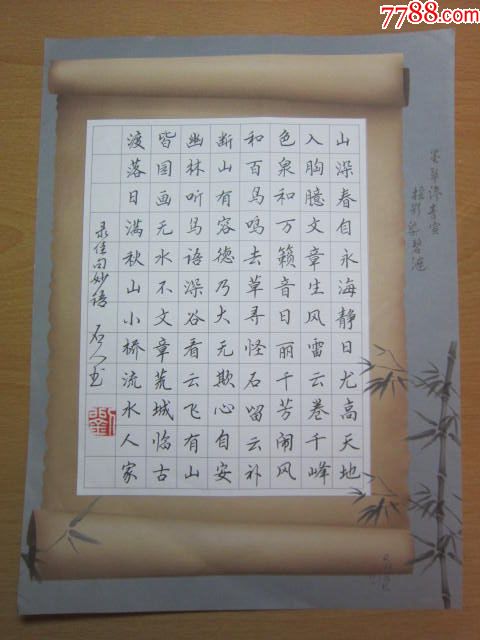 7788.com
墨翠渗青宣
枝影染碧池
山深春自永海静日尤高天地
入胸臆文章生风雷云卷千峰
色泉和万籁音日丽千芳闹风
和百鸟鸣去草寻怪石留云补
断山有容德乃大无欺心自安
幽林听鸟语深谷看云飞有山
皆图画无水不文章荒城临古
渡落日满秋山小桥流水人家
录佳句妙语 石人书